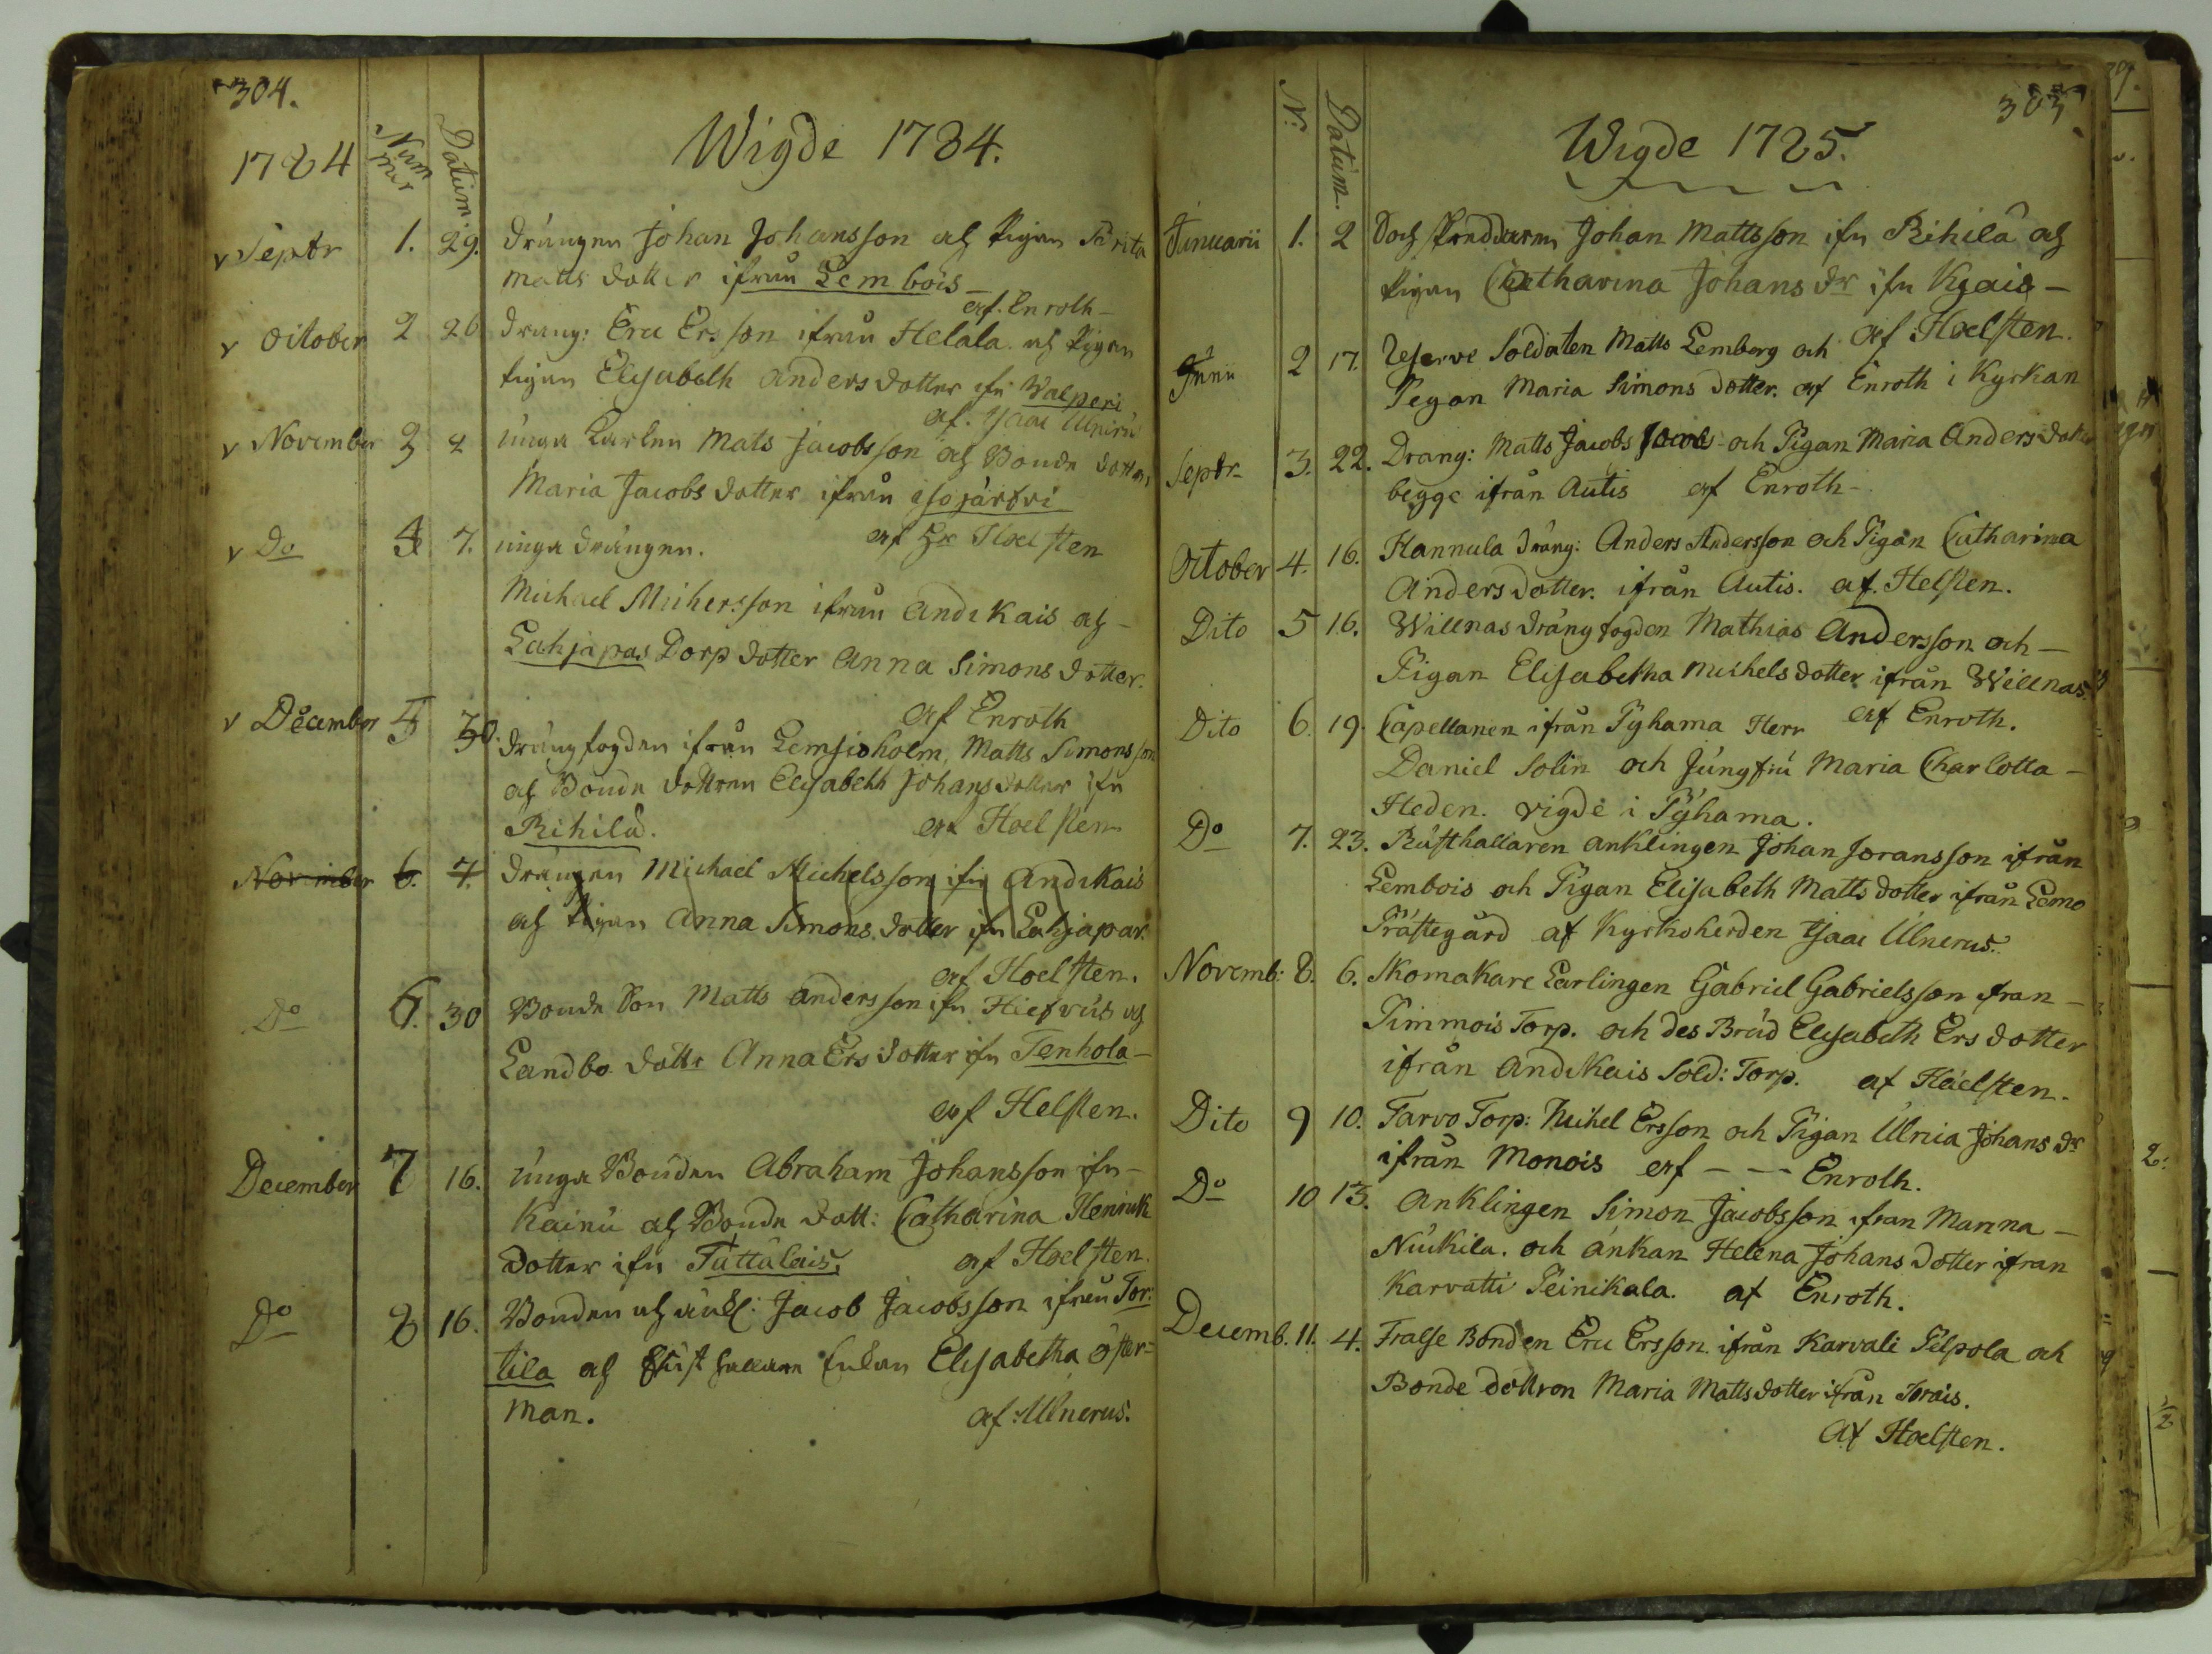 304.
1784
Num
mer
Datum.
Wigde 1784.
Septr 1. 29. drängen Johan Johansson och pigan Brita
Matts dotter ifrån Lembois
af. Enroth
October 2 26 dräng: Eric Ersson ifrån Helala och pigan
pigan Elisabeth Anders dotter ifn Walperi
November 3 2 unga Karlen Mats Jacobsson och Bonde dottren
Maria Jacobs dotter ifrån isojärfvi
af Hoelsten
Do 4 7. unga drängen.
Michael Michersson ifrån Andikais och
Lahjapas Torp dotter Anna Simons dotter.
af Enroth
December 5 30. drängfogden ifrån Lemsioholm, Matts Simonsson
och Bonde dottren Elisabeth Johans dotter ifn
Rihilä. af Hoelsten
November 6. 7. drängen Michael Michelsson ifn Andikais
och pigan Anna Simons dotter ifn Lahjapas.
af Hoelsten.
Do 6. 30 Bonde Son Matts Andersson ifn Hiefvus och
Landbo dottr Anna Ers dotter ifn Tenhola
af Helsten.
December 7 16. unga Bonden Abraham Johansson ifn
Kainu och Bonde dott: Catharina Henrick
dotter ifn Tuttulais. af Hoelsten.
Do 8 16. Bonden och änkl: Jacob Jacobsson ifrån Tor:
tila och Rusthållare Enkan Elisabetha öster=
man. af: Ulnerus.
305
N:
Datum.
Wigde 1785.
Januarii 1. 2 Johan Mattsson ifn Rihilä och
pigan Catharina Johans dr ifn Kaais
af Hoelsten.
Junii 2 17. Reserve Soldaten Matts Lemberg och
Pigan Maria Simons dotter. af Enroth i Kyrkan
Septr 3. 22. Dräng: Matts Jacobs och Pigan Maria Anders dotter
begge ifrån Autis af Enroth
October 4. 16. Hannula dräng: Anders Andersson och Pigan Catharina
Anders dotter. ifrån Autis. af. Helsten.
Dito 5 16. Willnas drängfogden Mathias Andersson och
Pigan Elisabetha Michels dotter ifrån Willnas.
af Enroth.
Dito 6. 19. Capellanen ifrån Pyhama Herr
Daniel Solin och Jungfru Maria Charlotta
Heden. vigde i Pyhama.
Do 7. 23. Rusthallaren anklingen Johan Joransson ifrån
Lembois och Pigan Elisabeth Matts dotter ifrån Lemo
Prästegård af Kyrkoherden Isaac Ulnerus.
Novemb: 8. 6. Skomakare Earlingen Gabriel Gabrielsson fran
Timmois Torp. och des Brud Elisabeth Ers dotter
ifrån Andikais Sold: Torp. af Häelsten.
Dito 9 10. Tarvo Torp: Michel Ersson och Pigan Ulrica Johans dr
ifrån Monois af - - Enroth.
Do 10 13. Anklingen Simon Jacobsson ifran Manna
Nuikila. och änkan Helena Johans dotter ifran
Karvatti Peinikala. af Enroth.
Decemb. 11. 4. Fralse Bonden Eric Ersson ifrån Karvati Pilpola och
Bonde dottron Maria Matts dotter ifrån Irais.
Af Hoelsten.